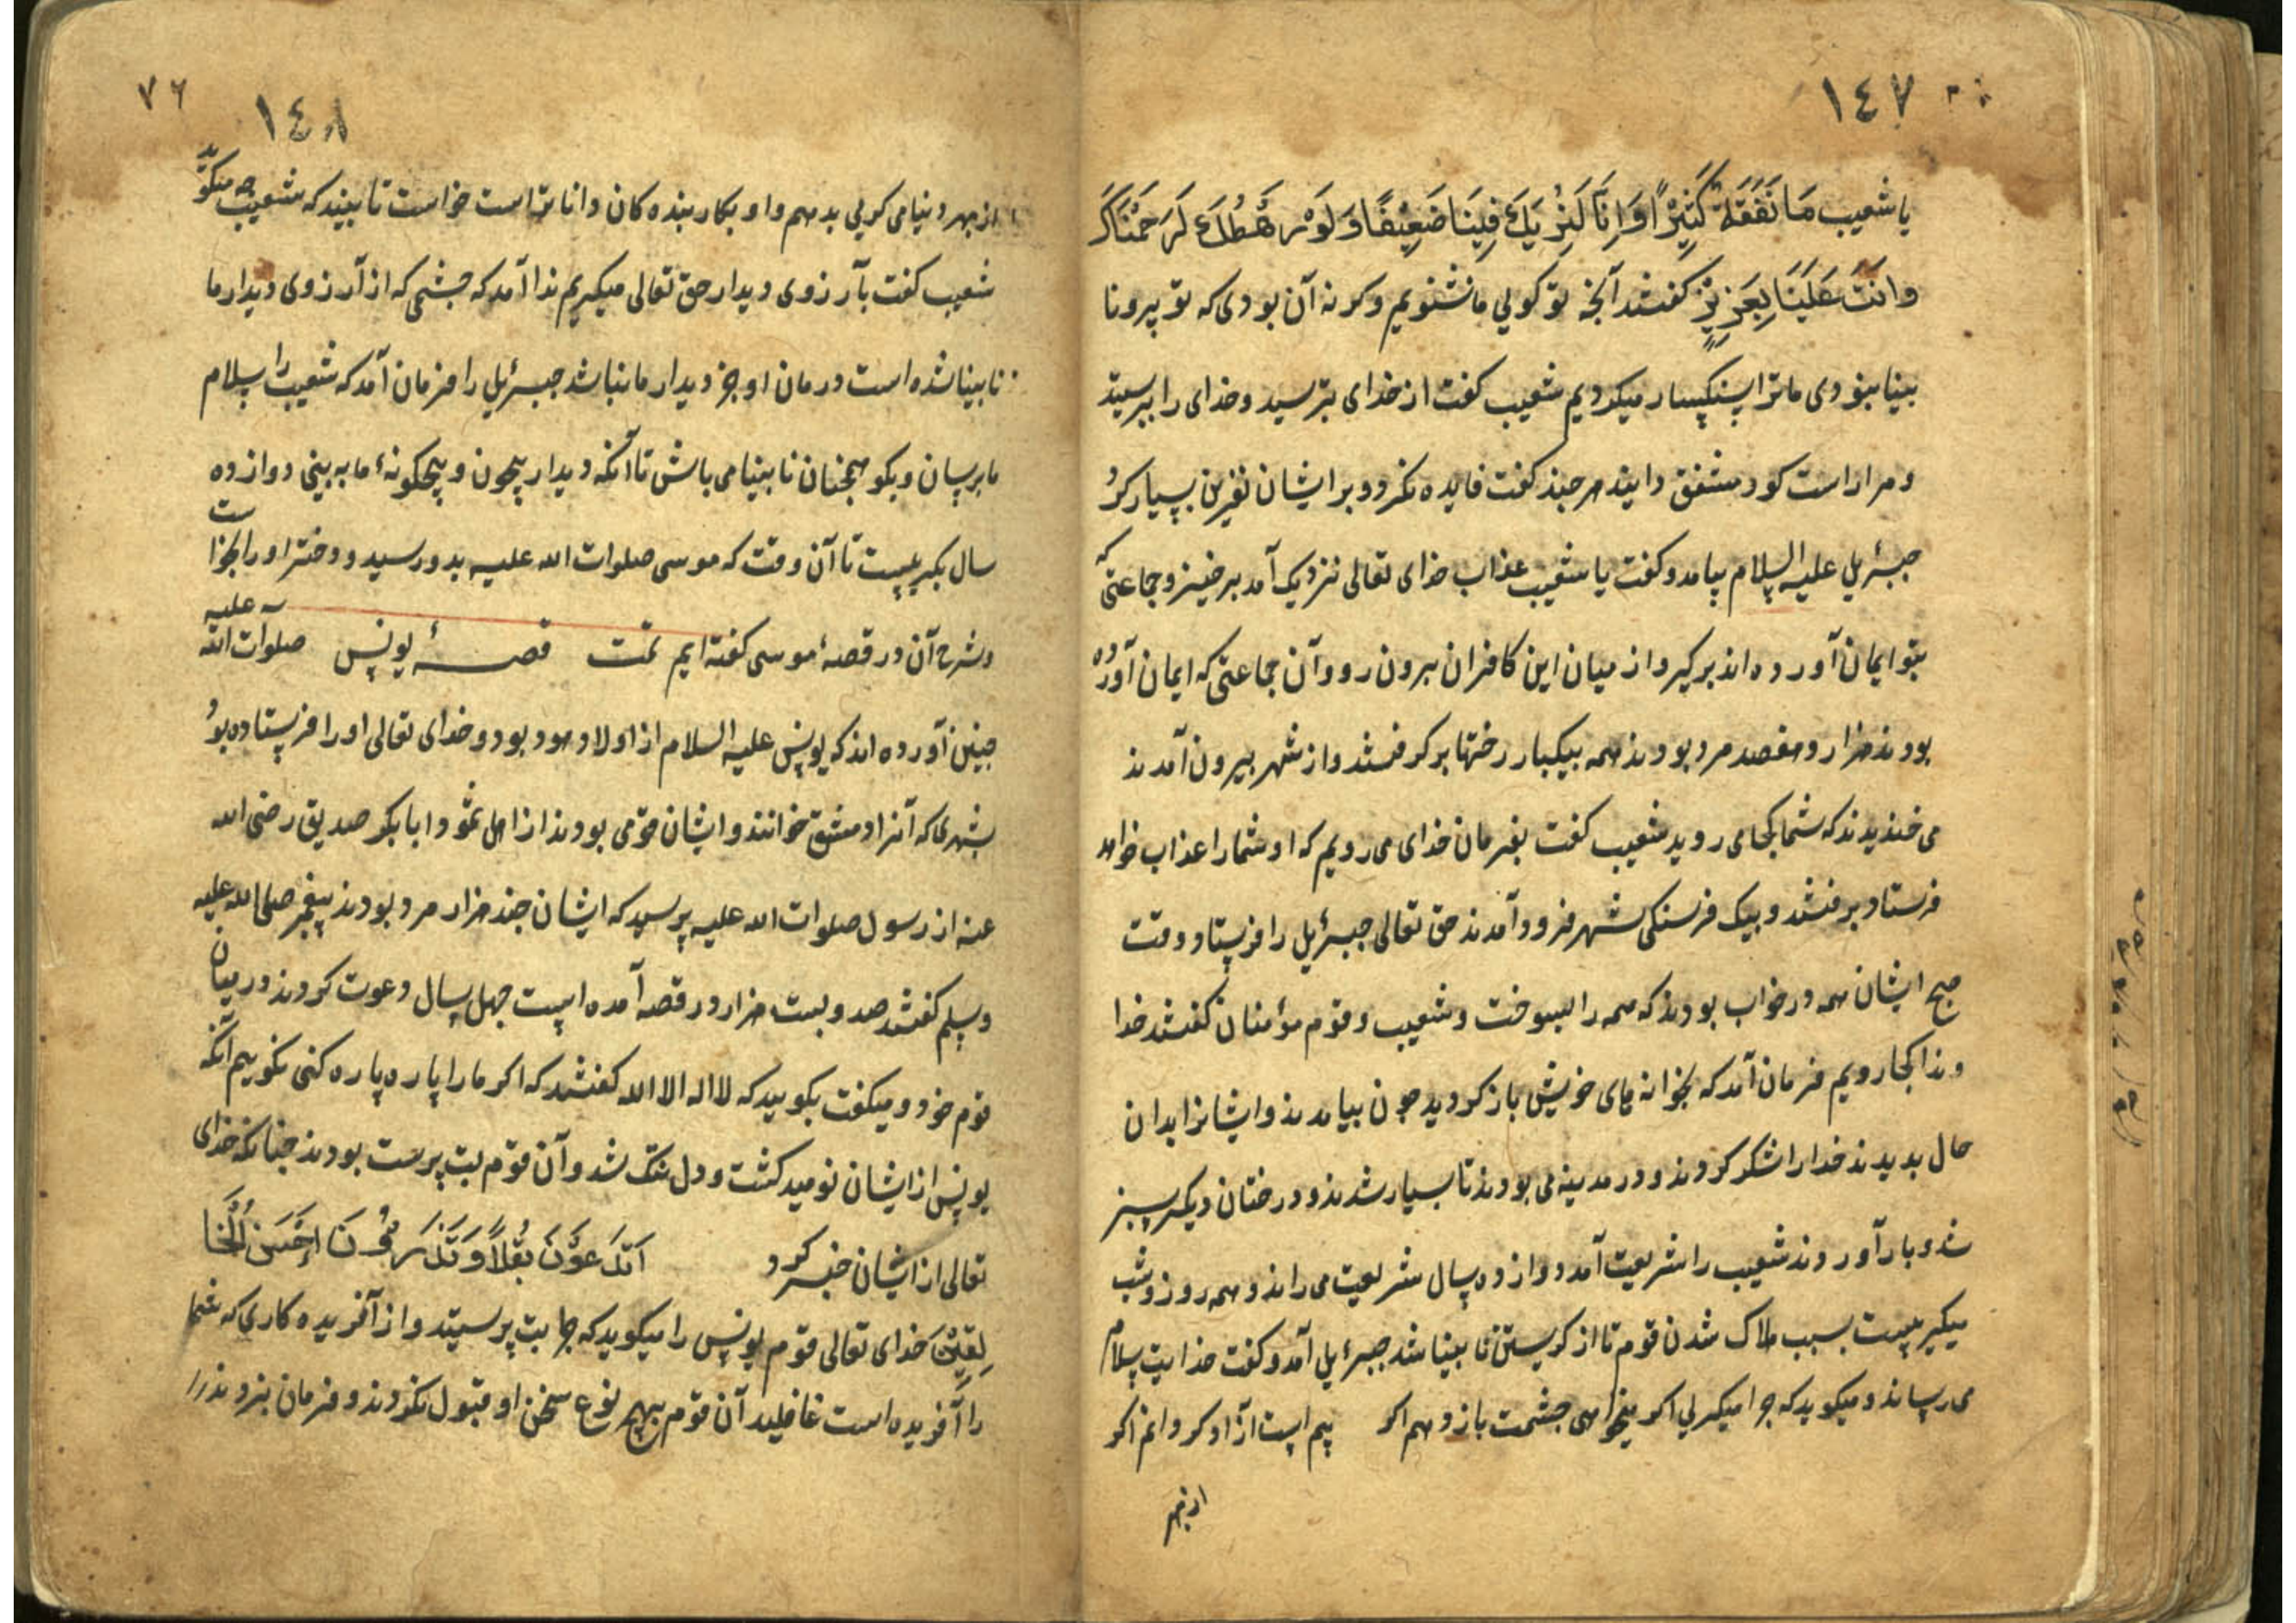 ١٤٧
یا شعیب مَا نَفْقَهُ كَثِیْرًا وَاِنَّا لَنَرٰیكَ فِینَا ضَعِیْفًا وَلَوْلَا رَهْطُكَ لَرَجَمْنَاكَ
وَانَتَ عَلَیْنَا بِعَزِیْزٍ كفتند آنچه تو كویی ما نشنویم و كرنه آن بودی كه تو پیر و نا
بینا بنودی ما ترا سنكسار میكردیم شعیب كفت از خدای بترسید و خدای را بپرسیتد
و مرا راست كو و مشفق دانیند هرچند كفت فایده نكرد و بر ایشان نفرین بسیار كرد
جبرئیل علیه السلام بیامد و كفت یا شعیب عذاب خدای تعالی نزدیك آمد برخیز و جماعتی كه
بتو ایمان آورده اند بركیر و از میان این كافران بیرون رو و آن جماعتی كه ایمان آورده
بودند هزار و هفصد مرد بودند همه بیكبار رختها بركرفتند و از شهر بیرون آمدند
می خندیدند كه شما بكجا می روید شعیب كفت بفرمان خدای می رویم كه او شما را عذاب خواهد
فرستاد برفتند و بیك فرسنكی شهر فرود آمدند حق تعالی جبرئیل را فرستاد وقت
صبح ایشان همه در خواب بودند كه همه را بسوخت و شعیب و قوم مؤمنان كفتند خدا
وندا كجا رویم فرمان آمد كه بخوانه های خویش باز كردید چون بیامدند و ایشانرا بدان
حال بدیدند خدا را شكر كردند و در مدینه می بودند تا بسیار شدند و درختان دیكر سبز
شد و بار آوردند شعیب را شریعت آمد دوازده سال شریعت می راند و همه روز و شب
میكیریست بسبب هلاك شدن قوم تا از كریستن نابینا شد جبرئیل آمد و كفت خدایت سلام
می رساند و میكوید كه چرا میكریی اكر میخواهی چشمت باز دهم اكر بیم است آزاد كردانم اكر
از بهر
١٤٨
٧٦
از بهر دنیا می كریی بدهم و او بكار بنده كان داناتر است خواست تا بینند كه شعیب چه میكوید
شعیب كفت بآرزوی دیدار حق تعالی میكریم ندا آمد كه چشمی كه از آرزوی دیدار ما
نابینا شده است درمان او جز دیدار ما نباشد جبرئیل را فرمان آمد كه شعیب را سلام
ما برسان و بكو همچنان نابینا می باش تا آنكه دیدار بیچون و بیچكونهٔ ما به بینی دوازده
سال بكریست تا آن وقت كه موسی صلوات الله علیه بدو رسید و دختر او را بخواست
و شرح آن در قصهٔ موسی كفته ایم تمت قصهٔ یونس صلوات الله علیه
چنین آورده اند كه یونس علیه السلام از اولاد هود بود و خدای تعالی او را فرستاده بود
بشهری كه آنرا دمشق خوانند و ایشان قومی بودند از اهل ثمود ابا بكر صدیق رضی الله
عنه از رسول صلوات الله علیه پرسید كه ایشان چند هزار مرد بودند پیغمبر صلی الله علیه
وسلم كفتند صد و بیست هزار و در قصه آمده است چهل سال دعوت كردند در میان
قوم خود و میكفت بكویید كه لا اله الا الله كفتند كه اكر ما را پاره پاره كنی نكوییم آنكه
یونس از ایشان نومید كشت و دل تنك شد و آن قوم بت پرست بودند چنانكه خدای
تعالی از ایشان خبر كرد اَتَدْعُوْنَ بَعْلًا وَتَذَرُوْنَ اَحْسَنَ الْخَا
لِقِیْنَ خدای تعالی قوم یونس را میكوید كه چرا بت پرسیتد و از آفریده كاری كه شما
را آفریده است غافلید آن قوم بهیچ نوع سخن او قبول نكردند و فرمان نبردند